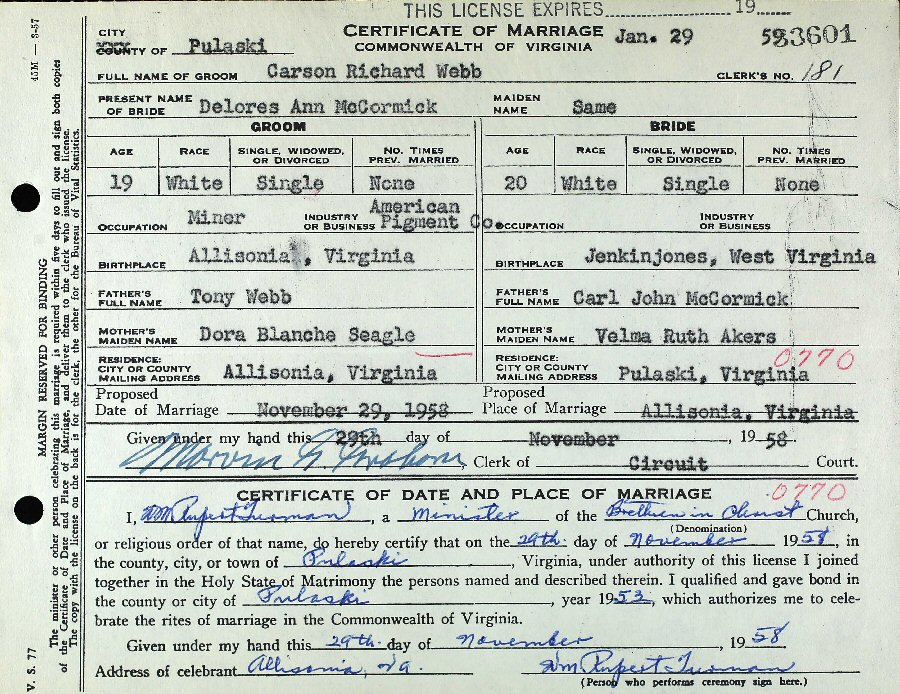 THIS LICENSE EXPIRES 19
CITY
COUNTY OF Pulaski
CERTIFICATE OF MARRIAGE
COMMONWEALTH OF VIRGINIA
Jan. 29 5933601
FULL NAME OF GROOM Carson Richard Webb CLERK'S NO. 181
PRESENT NAME OF BRIDE Delores Ann McCormick MAIDEN NAME Same
GROOM BRIDE
AGE RACE SINGLE, WIDOWED, OR DIVORCED NO. TIMES PREV. MARRIED AGE RACE SINGLE, WIDOWED, OR DIVORCED NO. TIMES PREV. MARRIED
19 White Single None 20 White Single None
OCCUPATION Miner INDUSTRY OR BUSINESS American Pigment Co. OCCUPATION INDUSTRY OR BUSINESS
BIRTHPLACE Allisonia, Virginia BIRTHPLACE Jenkinjones, West Virginia
FATHER'S FULL NAME Tony Webb FATHER'S FULL NAME Carl John McCormick
MOTHER'S MAIDEN NAME Dora Blanche Seagle MOTHER'S MAIDEN NAME Velma Ruth Akers
0770
RESIDENCE: CITY OR COUNTY MAILING ADDRESS Allisonia, Virginia RESIDENCE: CITY OR COUNTY MAILING ADDRESS Pulaski, Virginia
Proposed Date of Marriage November 29, 1958 Proposed Place of Marriage Allisonia, Virginia
Given under my hand this 29th day of November, 1958.
Marvin G. Graham Clerk of Circuit Court.
CERTIFICATE OF DATE AND PLACE OF MARRIAGE 0770
I, Wm Rupert Turman, a Minister of the Brethren in Christ Church,
(Denomination)
or religious order of that name, do hereby certify that on the 29th day of November 1958, in
the county, city, or town of Pulaski, Virginia, under authority of this license I joined
together in the Holy State of Matrimony the persons named and described therein. I qualified and gave bond in
the county or city of Pulaski, year 1953, which authorizes me to cele-
brate the rites of marriage in the Commonwealth of Virginia.
Given under my hand this 29th day of November, 1958
Address of celebrant Allisonia, Va. Wm Rupert Turman
(Person who performs ceremony sign here.)
45M — 3-57
V. S. 77
MARGIN RESERVED FOR BINDING
The minister or other person celebrating this marriage is required within five days to fill out and sign both copies
of the Certificate of Date and Place of Marriage, and deliver them to the clerk who issued the license.
The copy with the license on the back is for the clerk, the other for the Bureau of Vital Statistics.